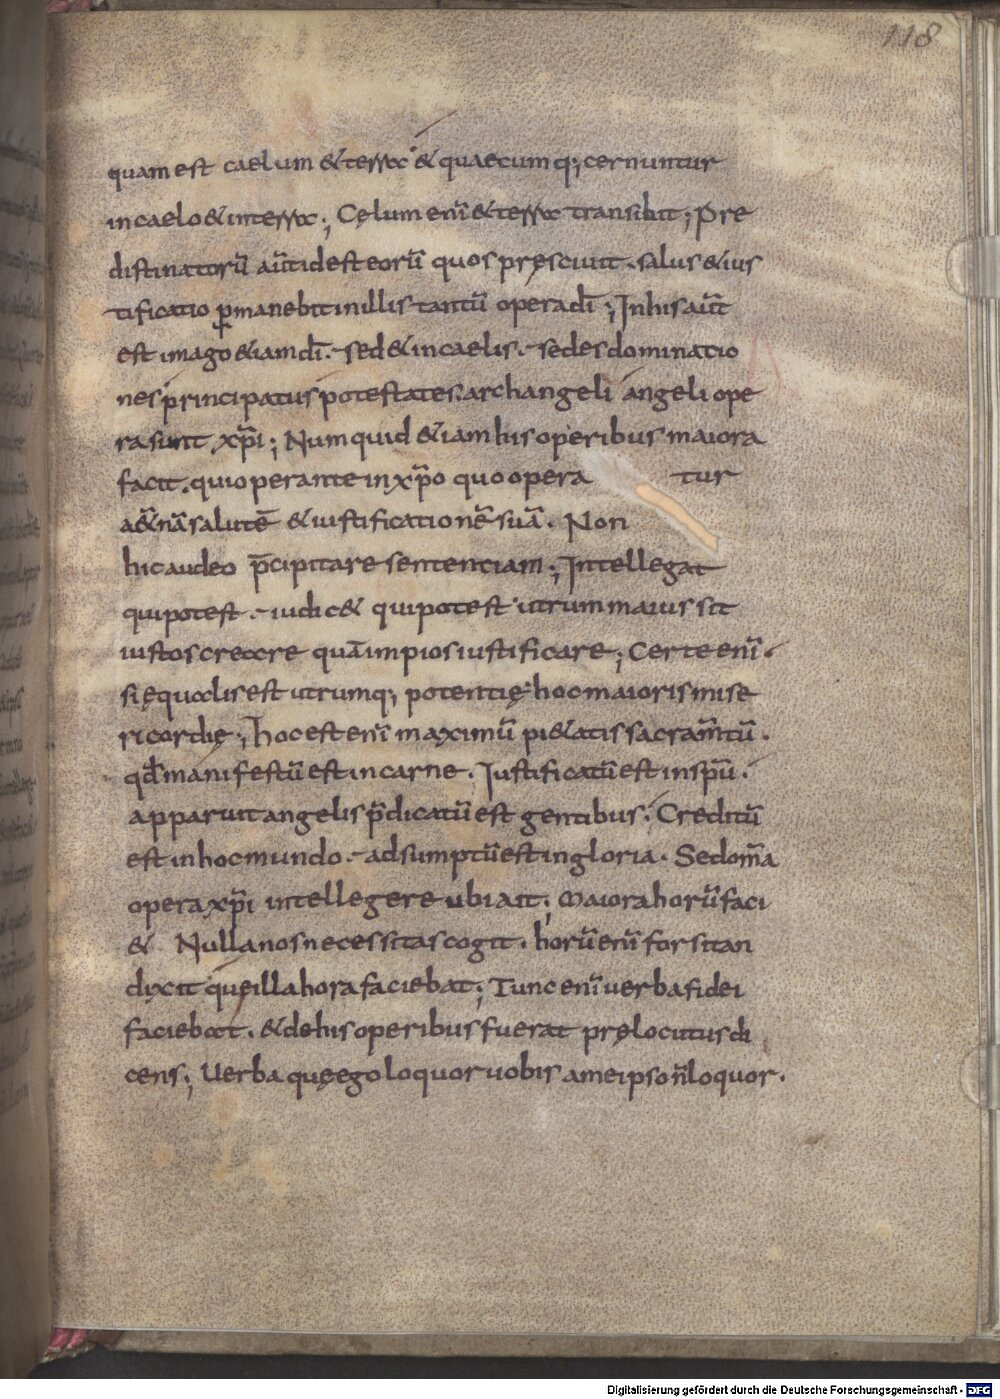 118
quam est caelum & terra & quaecumq; cernuntur
in caelo & in terra; Cęlum enī & terra transibit; Pre
distinatorū aūt idest eorū quos pręsciuit. salus & ius
tificatio p̱manebit in illis tantū opera dī; In his aūt
est imago & iam dī. sed & in caelis. sedes dominatio
nes principatus potestates. archangeli angeli ope
ra sunt xp̄i; Numquid & iam his operibus maiora
facit. qui operante in xp̄o quo opera tur
a&̄nā salutē & iustificationē suā. Non
hic audeo p̄cipitare sentenciam; Intellegat
qui potest. iudic& qui potest utrum maius sit
iustos creare quā impios iustificare; Certe enī.
si ęqualis est utrumq; potentię hoc maioris mise
ricordię; hoc est enī maximū pi&atis sacram̄tū.
qd̄ manifestū est in carne. Iustificatū est in sp̄u.
apparuit angelis p̄dicatū est gentibus. Creditū
est in hoc mundo. adsumptū est in gloria. Sed om̄a
opera xp̄i intellegere ubi ait; Maiora horū faci
& Nulla nos necessitas cogit. horū enī forsitan
dixit quę illa hora faciebat; Tunc enī uerba fidei
faciebat. & de his operibus fuerat pręlocutus di
cens; Uerba quę ego loquor uobis a me ipso n̄ loquor.
Digitalisierung gefördert durch die Deutsche Forschungsgemeinschaft - DFG